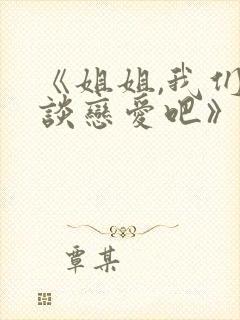 《姐姐,我们
談戀愛吧》
覃某